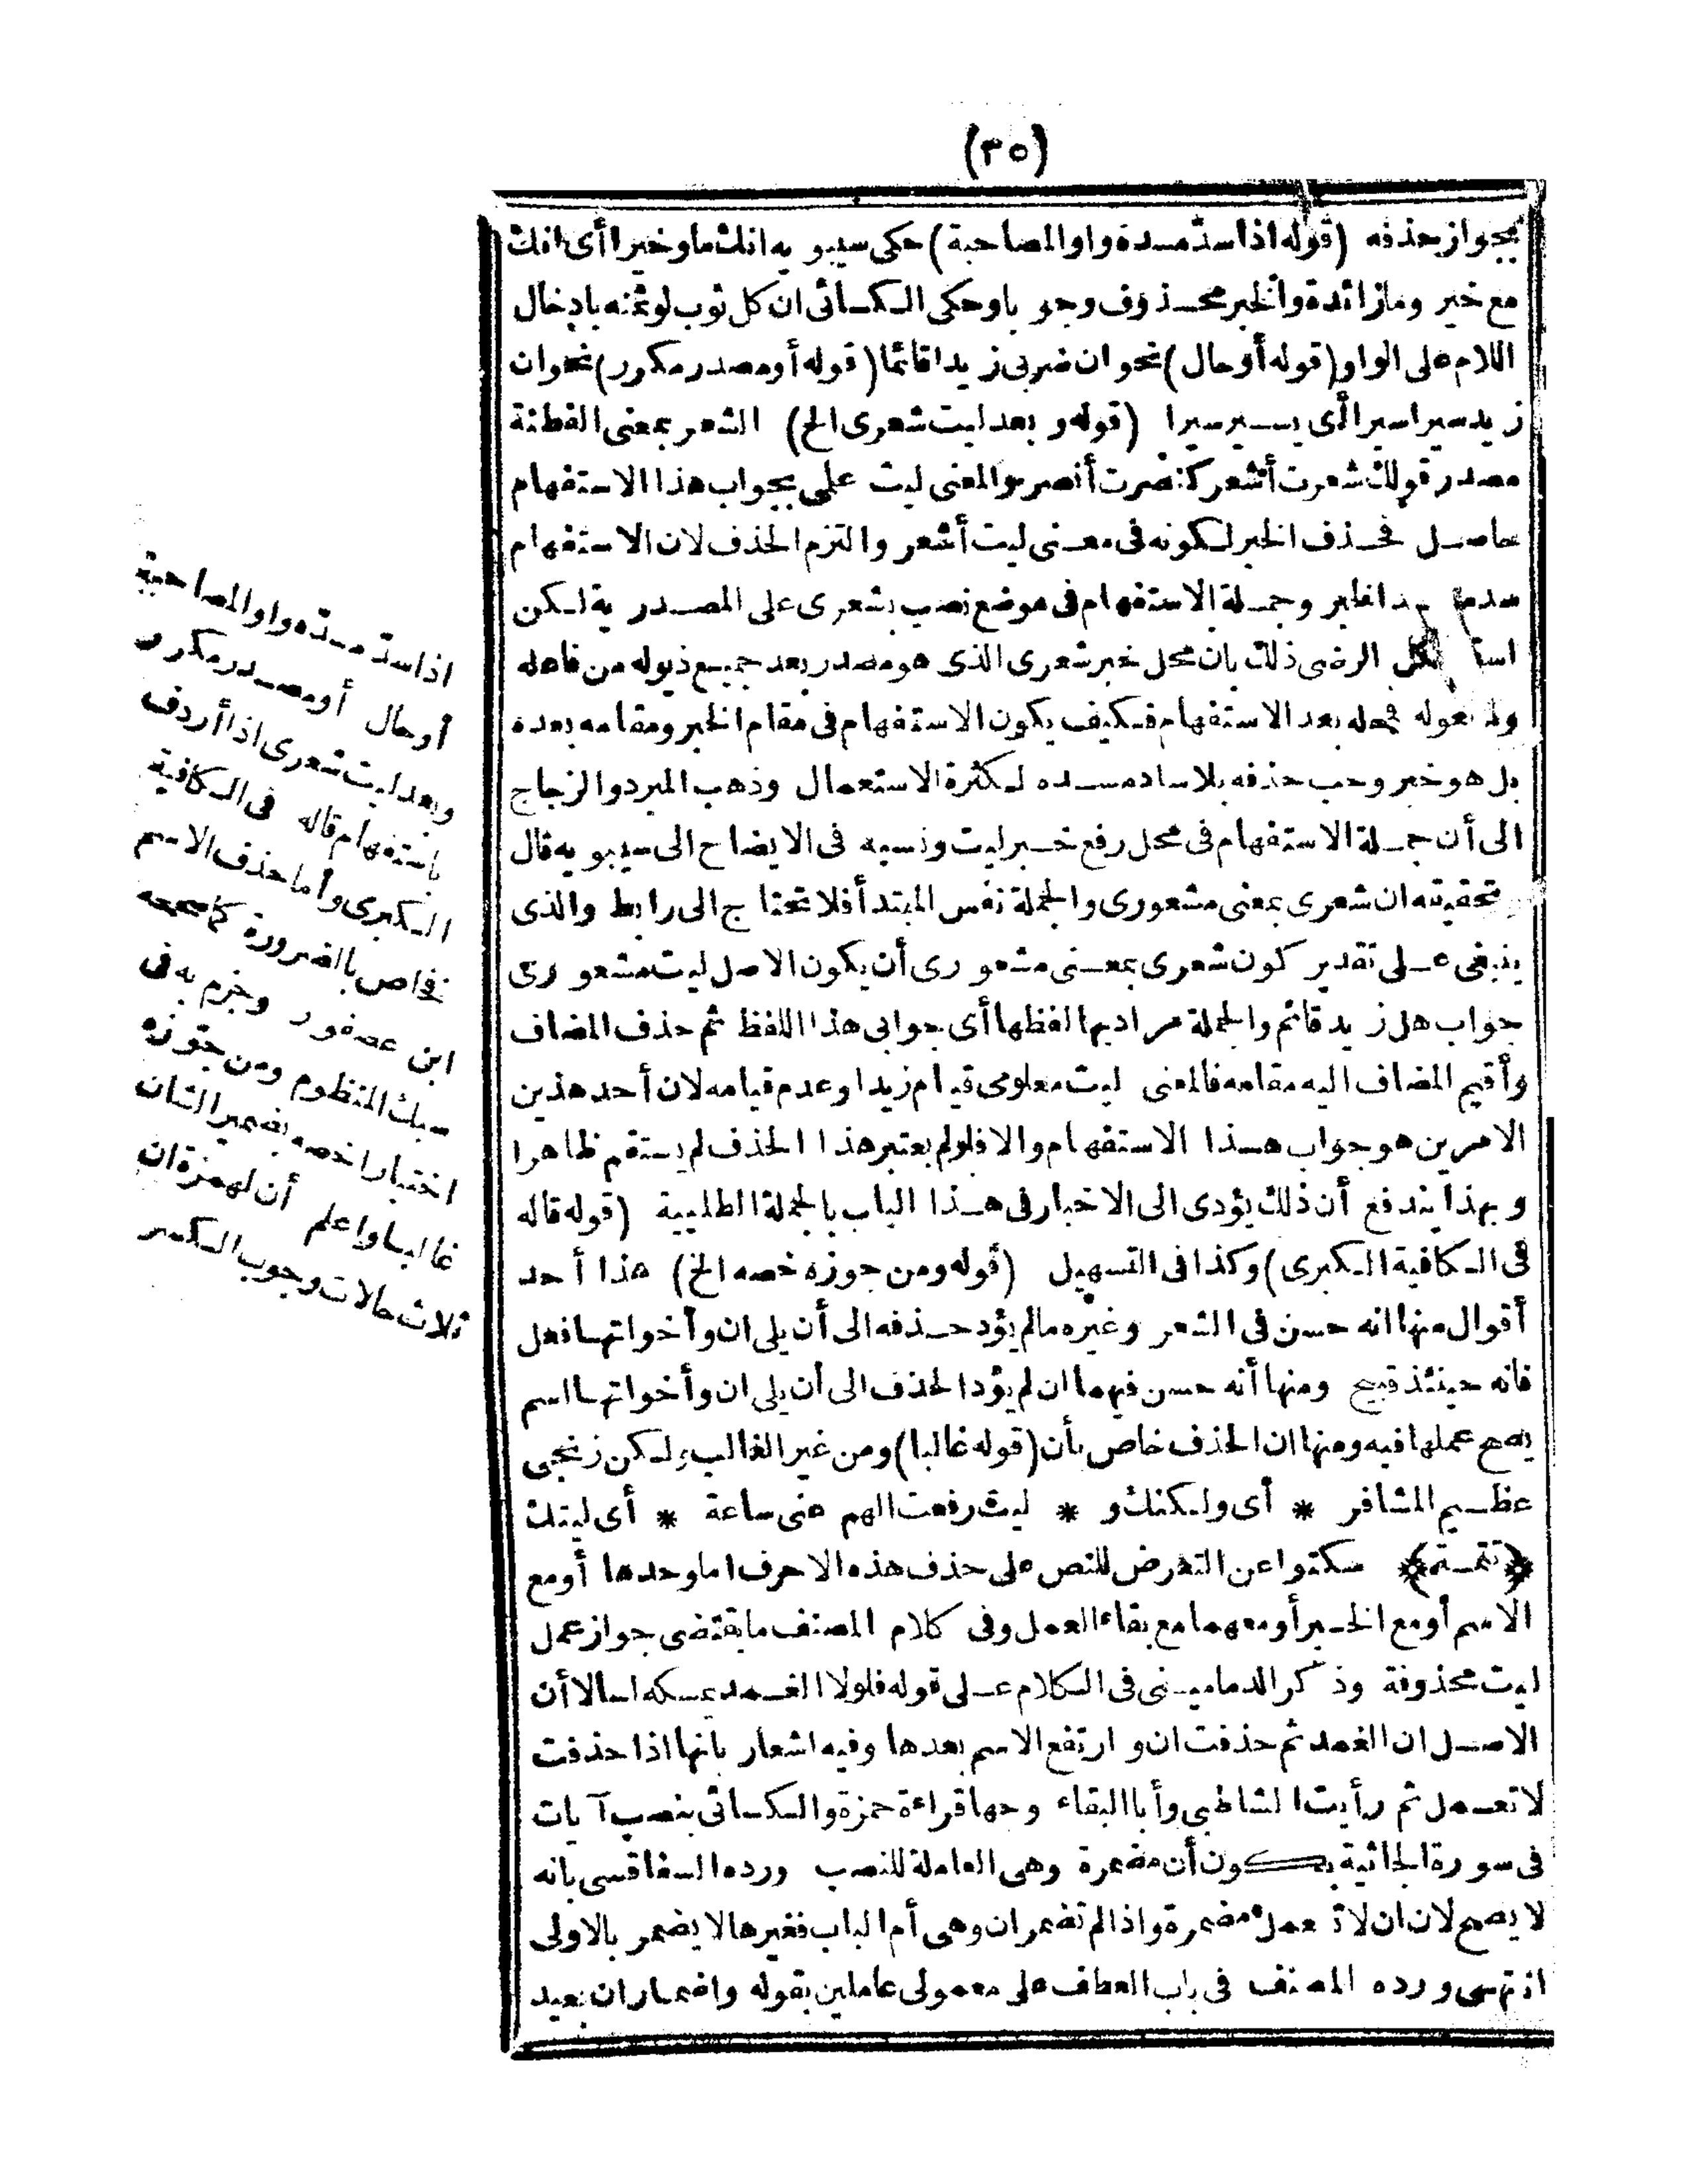 (٣٥)
بجواز حذفه (قوله اذا سدّ مسده واو المصاحبة) حكى سيبويه انك ما وخيرا أى انك
مع خير وما زائدة والخبر محذوف وجوبا وحكى الكسائى ان كل ثوب لو ثمنه بادخال
اللام على الواو (قوله أو حال) نحو ان ضربى زيدا قائما (قوله أو مصدر مكرر) نحو ان
زيد سيرا سيرا أى يسير سيرا (قوله وبعد ليت شعرى الخ) الشعر بمعنى الفطنة
مصدر قولك شعرت أشعر كنصرت أنصر والمعنى ليت علمى بجواب هذا الاستفهام
حاصل فحذف الخبر لكونه فى معنى ليت أشعر والتزم الحذف لان الاستفهام
سد الخبر وجملة الاستفهام فى موضع نصب بشعرى على المصدرية لكن
الرضى ذلك بان محل خبر شعرى الذى هو مصدر بعد جميع ذيوله من فاعله
فمحله بعد الاستفهام فكيف يكون الاستفهام فى مقام الخبر ومقامه بعده
بل هو خبر وجب حذفه بلا ساد مسده لكثرة الاستعمال وذهب المبرد والزجاج
الى أن جملة الاستفهام فى محل رفع خبر ليت ونسبه فى الايضاح الى سيبويه قال
تحقيقه ان شعرى بمعنى مشعورى والجملة نفس المبتدأ فلا تحتاج الى رابط والذى
ينبغى على تقدير كون شعرى بمعنى مشعورى أن يكون الاصل ليت مشعورى
جواب هل زيد قائم والجملة مراد بها لفظها أى جوابى هذا اللفظ ثم حذف المضاف
وأقيم المضاف اليه مقامه فالمعنى ليت معلومى قيام زيد او عدم قيامه لان أحد هذين
الامرين هو جواب هذا الاستفهام والا فلو لم يعتبر هذا الحذف لم يستقم ظاهرا
وبهذا يندفع أن ذلك يؤدى الى الاخبار فى هذا الباب بالجملة الطلبية (قوله قاله
فى الكافية الكبرى) وكذا فى التسهيل (قوله ومن جوزه خصه الخ) هذا أحد
أقوال منها انه حسن فى الشعر وغيره ما لم يؤد حذفه الى أن يلى ان وأخواتها فعل
فانه حينئذ قبيح ومنها أنه حسن فيهما ان لم يؤد الحذف الى أن يلى ان وأخواتها اسم
يصح عملها فيه ومنها ان الحذف خاص بأن (قوله غالبا) ومن غير الغالب ولكن زنجى
عظيم المشافر * أى ولكنك و * ليت رفعت الهم عنى ساعة * أى ليتك
﴿تتمة﴾ سكتوا عن التعرض للنص على حذف هذه الاحرف اما وحدها أو مع
الاسم أو مع الخبر أو معهما مع بقاء العمل وفى كلام المصنف ما يقتضى جواز عمل
ليت محذوفة وذكر الدمامينى فى الكلام على قوله فلولا الغمد يمسكه لسالا أن
الاصل ان الغمد ثم حذفت ان وارتفع الاسم بعدها وفيه اشعار بانها اذا حذفت
لا تعمل ثم رأيت الشاطبى وأبا البقاء وجها قراءة حمزة والكسائى بنصب آيات
فى سورة الجاثية بكون أن مضمرة وهى العاملة للنصب ورده السفاقسى بانه
لا يصح لان ان لا تعمل مضمرة واذا لم تضمر ان وهى أم الباب فغيرها لا يضمر بالاولى
انتهى ورده المصنف فى باب العطف على معمولى عاملين بقوله واضمار ان بعيد
اذا سدّ مسدّه واو المصاحبة
أو حال أو مصدر مكرر
وبعد ليت شعرى اذا أردف
باستفهام قاله فى الكافية
الكبرى وأما حذف الاسم
فخاص بالضرورة كما صححه
ابن عصفور وجزم به فى
سبك المنظوم ومن جوّزه
اختيارا خصه بضمير الشان
غالبا واعلم أن لهمزة ان
ثلاث حالات وجوب الكسر